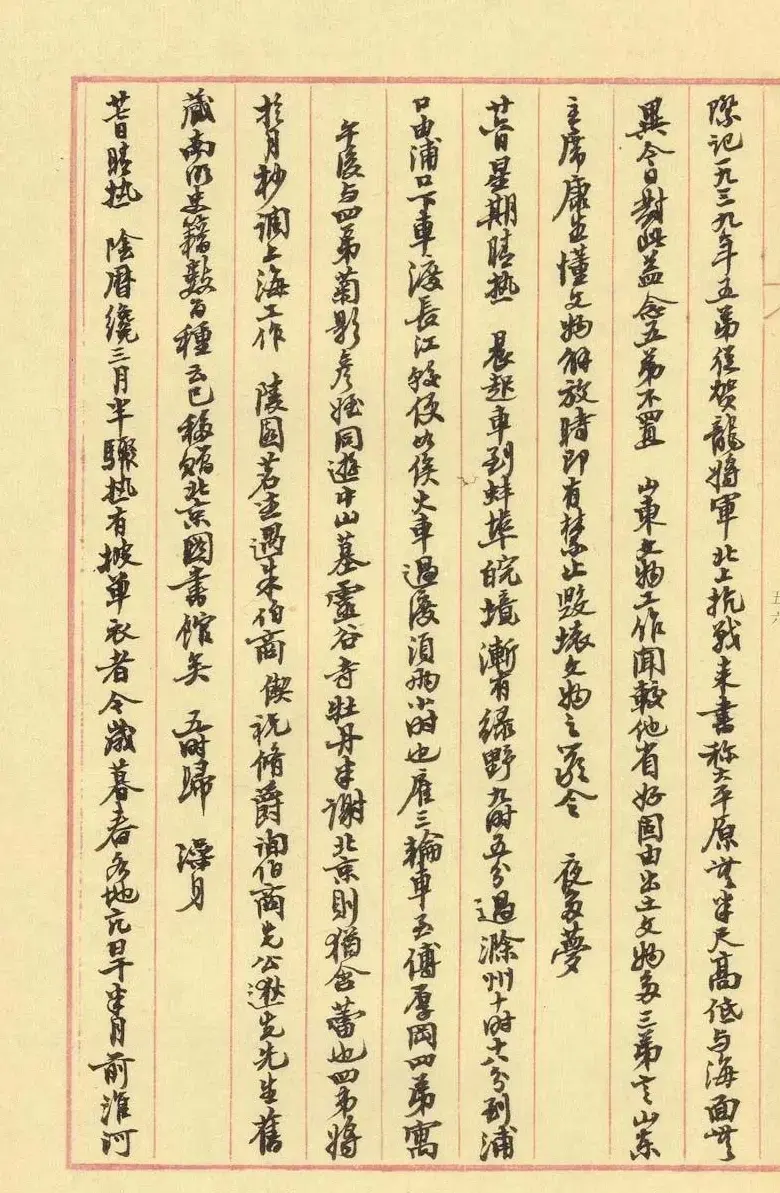 際记一九三九年五弟從贺龍將軍北上抗战来書称大平原無半尺高低与海面無
異今日對此益念五弟不置 山東文物工作聞較他省好固由出土文物多三弟言山东
主席康生懂文物解放時即有禁止毁壞文物之严令 夜多夢
星期晴热 晨起車到蚌埠皖境漸有绿野九时五分過滁州十时十六分到浦
口由浦口下車渡長江較便如候火車過渡須两小时也雇三輪車至傅厚岡四弟寓
午後与四弟菊影彦姪同遊中山墓靈谷寺牡丹半謝北京則猶含蕾也四弟將
於月杪调上海工作 陵园茗坐遇朱伯商偰祝脩爵询伯商先公逖先先生舊
藏南明史籍数百種云已移贈北京图書馆矣 五时歸 澡身
日晴热 陰曆纔三月半驟热有披单衣者今歲暮春各地亢旱半月前淮河
五六